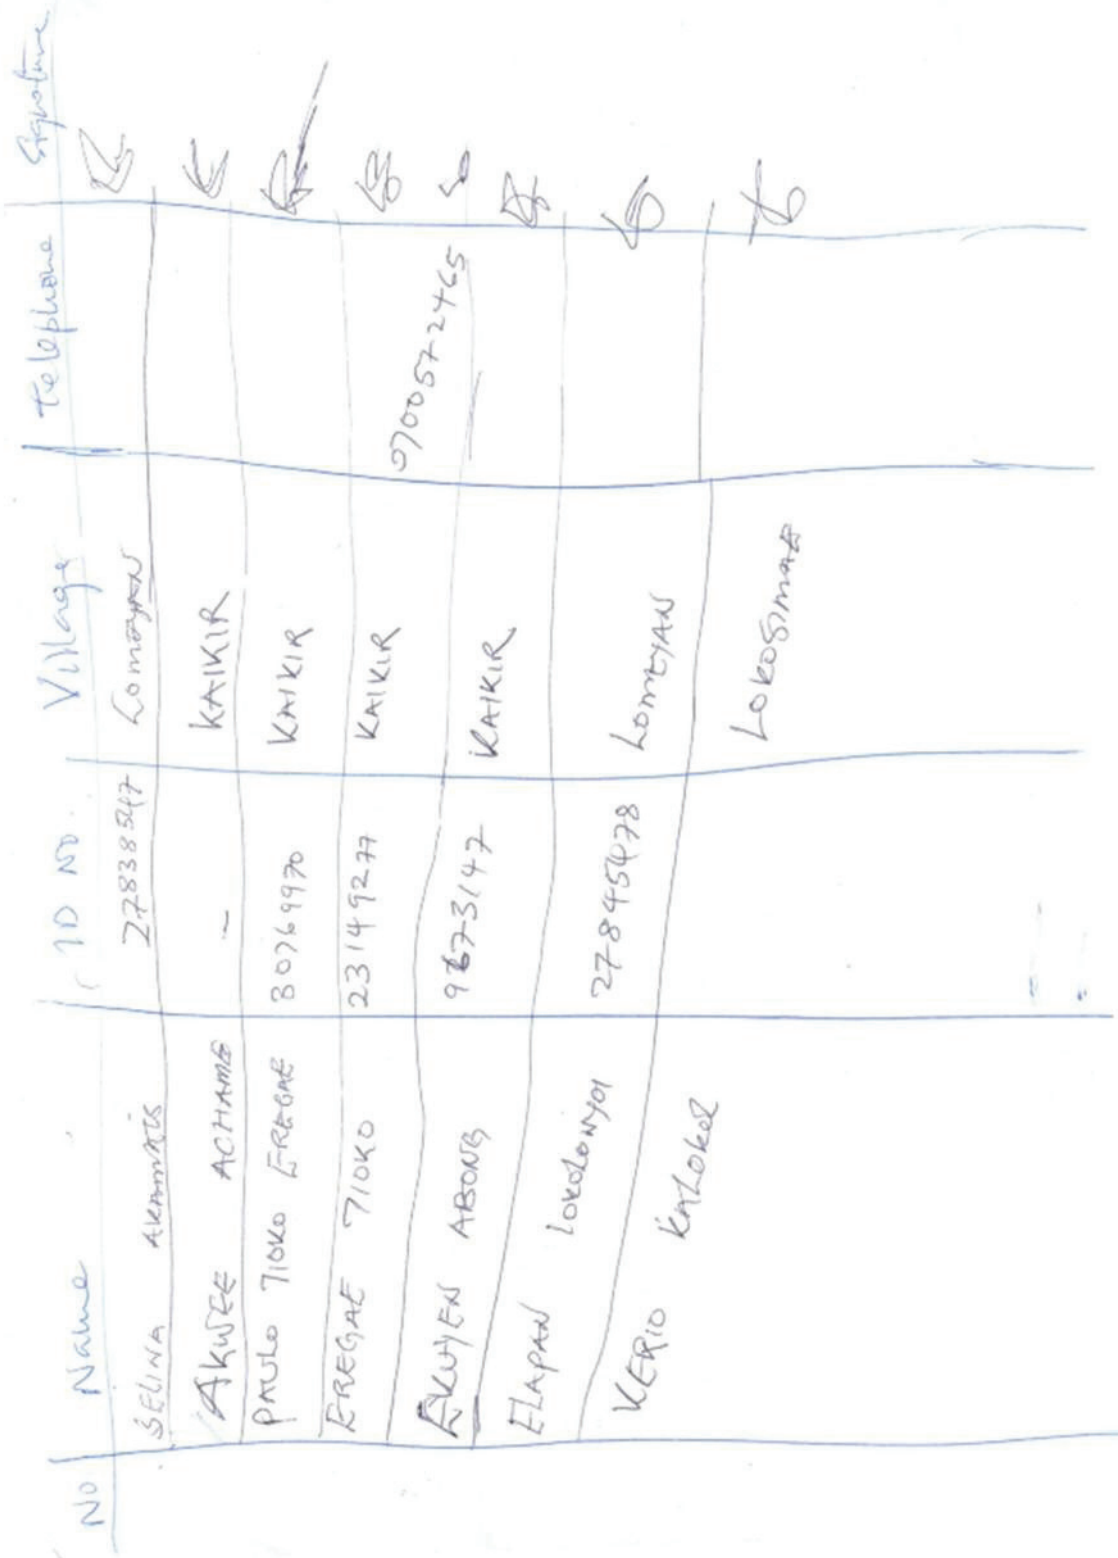 No Name ID No. Village Telephone Signature
SELINA AKAMAIS 27838547 Lomeyan
AKWEE ACHAME - KAIKIR
PAULO 71OKO EREGAE 30769970 KAIKIR
EREGAE 71OKO 23149277 KAIKIR 0700572465
EKUYEN ABONG 9673147 KAIKIR
ELAPAN LOKOLONYOI 27845478 LOMEYAN
KERIO KALOKOL LOKOSIMAE